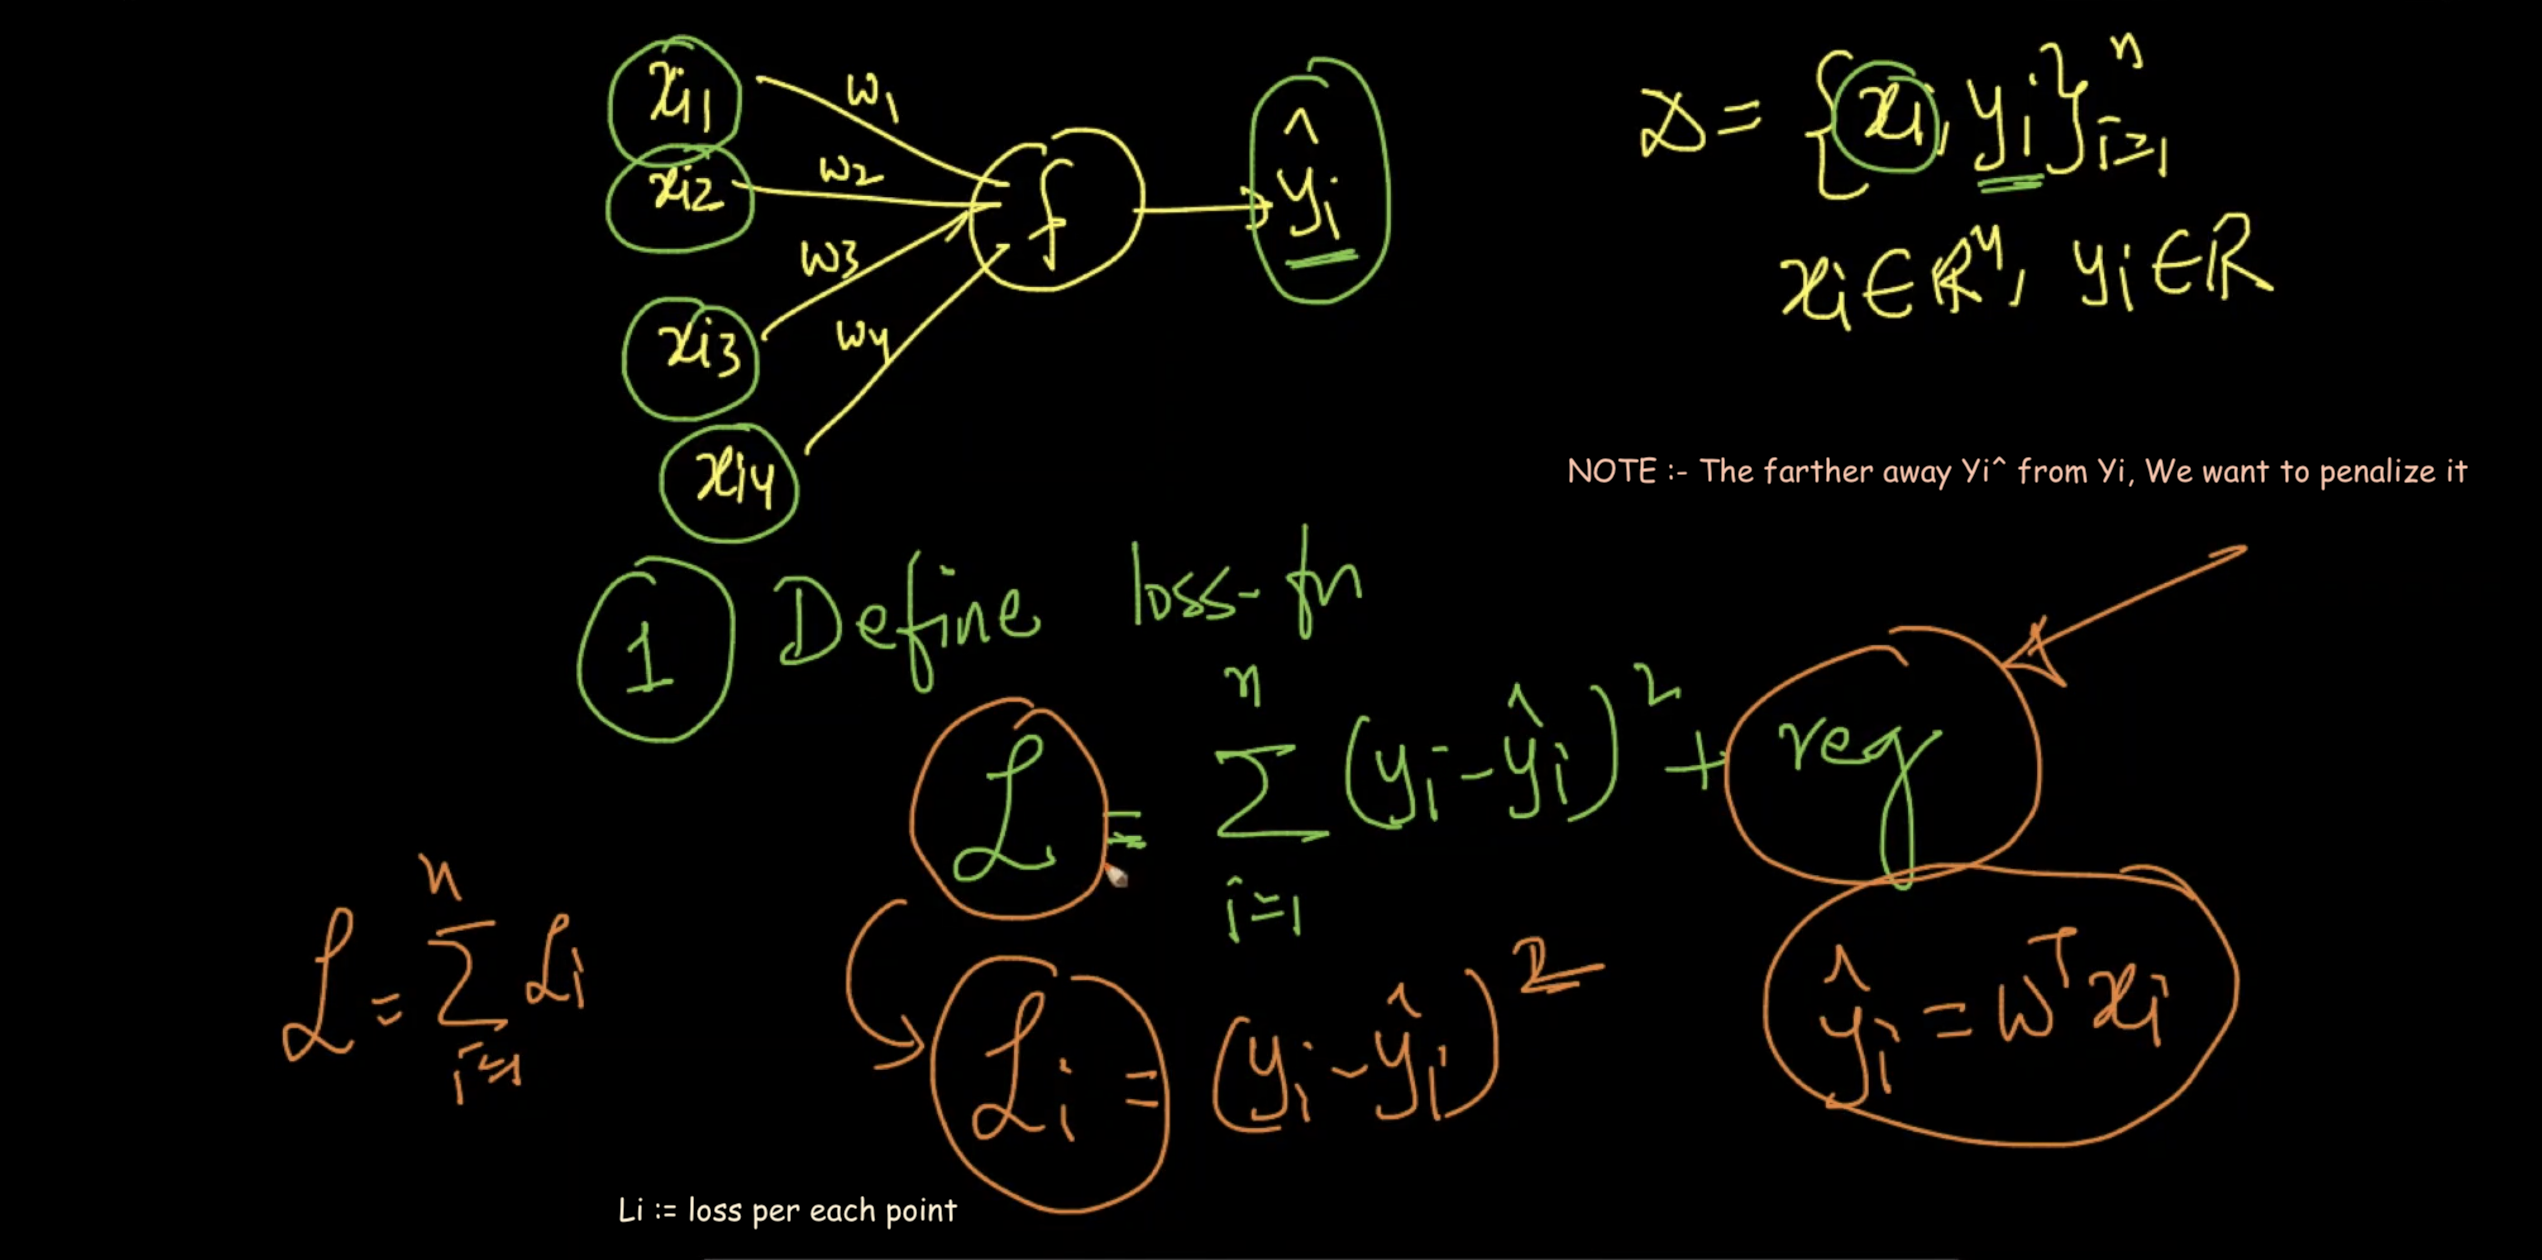 xi1
w1
xi2
w2
w3
xi3
w4
xi4
f
ŷi
D = {xi, yi}ⁿ i=1
xi ∈ R⁴, yi ∈ R
NOTE :- The farther away Yi^ from Yi, We want to penalize it
1 Define loss-fn
L = n Σ i=1 (yi - ŷi)² + reg
L = n Σ i=1 Li
Li = (yi - ŷi)²
ŷi = wᵀxi
Li := loss per each point